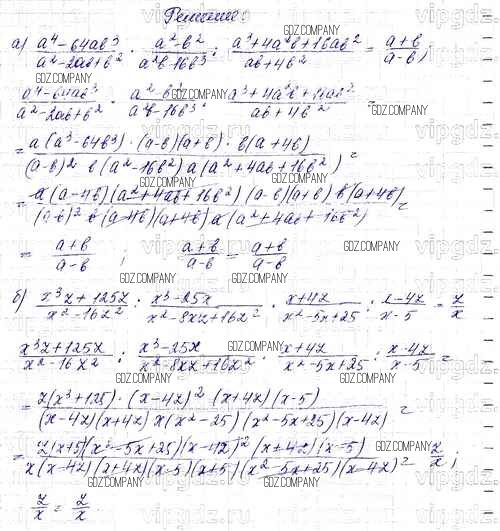 Решение:
а) (a⁴-64ab³)/(a²-2ab+b²) · (a²-b²)/(a²b-16b³) : (a³+4a²b+16ab²)/(ab+4b²) = (a+b)/(a-b);
(a⁴-64ab³)/(a²-2ab+b²) · (a²-b²)/(a²b-16b³) : (a³+4a²b+16ab²)/(ab+4b²) =
= (a(a³-64b³)·(a-b)(a+b)·b(a+4b))/((a-b)² b(a²-16b²) a(a²+4ab+16b²)) =
= (a(a-4b)(a²+4ab+16b²)(a-b)(a+b) b(a+4b))/((a-b)² b(a-4b)(a+4b) a(a²+4ab+16b²)) =
= (a+b)/(a-b); (a+b)/(a-b) = (a+b)/(a-b)
б) (x³z+125z)/(x²-16z²) : (x³-25x)/(x²-8xz+16z²) · (x+4z)/(x²-5x+25) : (x-4z)/(x-5) = z/x
(x³z+125z)/(x²-16z²) : (x³-25x)/(x²-8xz+16z²) · (x+4z)/(x²-5x+25) : (x-4z)/(x-5) =
= (z(x³+125)·(x-4z)²(x+4z)(x-5))/((x-4z)(x+4z)x(x²-25)(x²-5x+25)(x-4z)) =
= (z(x+5)(x²-5x+25)(x-4z)²(x+4z)(x-5))/(x(x-4z)(x+4z)(x-5)(x+5)(x²-5x+25)(x-4z)) = z/x;
z/x = z/x
GDZ.COMPANY
vipgdz.ru